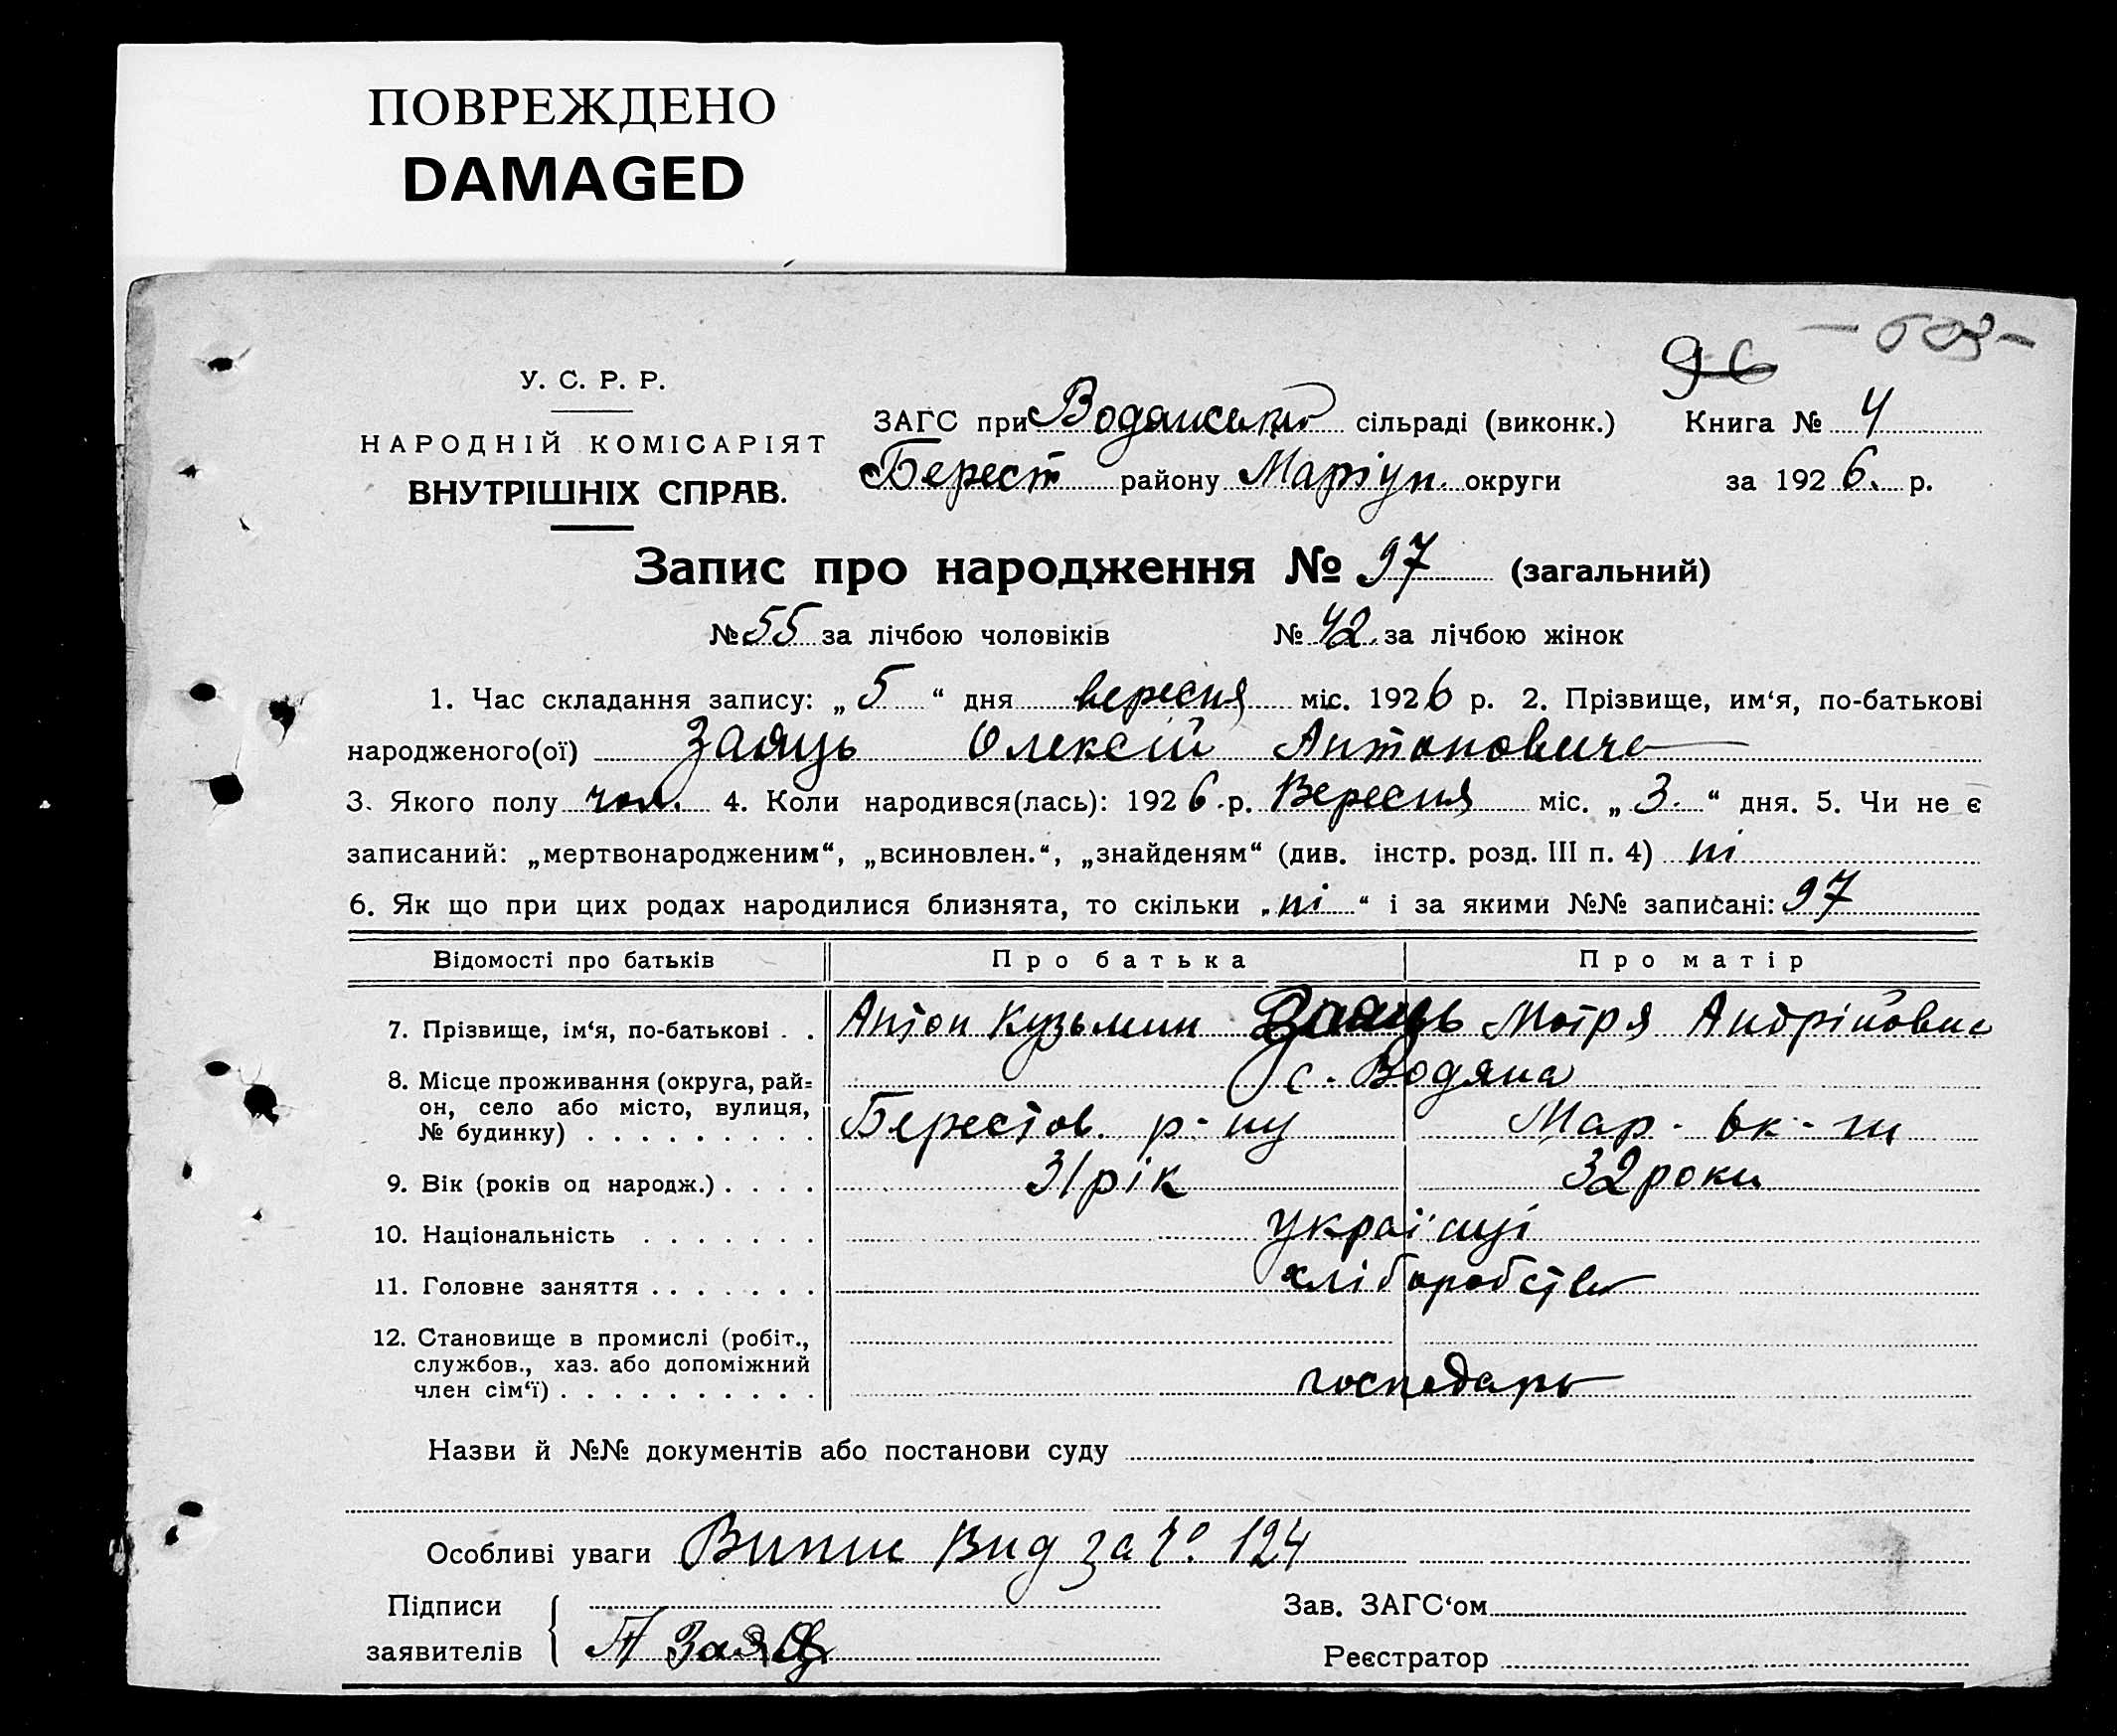 ПОВРЕЖДЕНО
DAMAGED
96 — 603 —
У. С. Р. Р.
НАРОДНІЙ КОМІСАРІЯТ
ВНУТРІШНІХ СПРАВ.
ЗАГС при Водянській сільраді (виконк.) Книга № 4
Берест району Маріуп. округи за 1926. р.
Запис про народження № 97 (загальний)
№ 55 за лічбою чоловіків № 42. за лічбою жінок
1. Час складання запису: „ 5 “ дня вересня міс. 1926 р. 2. Прізвище, им‘я, по-батькові
народженого(ої) Заяць Олексій Антонович
3. Якого полу чол. 4. Коли народився(лась): 1926.р. Вересня міс. „ 3. “ дня. 5. Чи не є
записаний: „мертвонародженим“, „всиновлен.“, „знайденям“ (див. інстр. розд. III п. 4) ні
6. Як що при цих родах народилися близнята, то скільки „ ні “ і за якими №№ записані: 97
Відомості про батьків Про батька Про матір
7. Прізвище, ім‘я, по-батькові . . Антон Кузьмин Заяць Мотря Андріївна
8. Місце проживання (округа, рай=
он, село або місто, вулиця,
№ будинку) . . . . . . . . .
с. Водяна
Берестов. р-ну Мар. Ок-ги
9. Вік (років од народж.) . . . . 31 рік 32 роки
10. Національність . . . . . . . українці
11. Головне заняття . . . . . . . хліборобство
12. Становище в промислі (робіт.,
службов., хаз. або допоміжний
член сім‘ї) . . . . . . . . . . господарь
Назви й №№ документів або постанови суду
Особливі уваги Випис Вид за № 124
Підписи Зав. ЗАГС‘ом
заявителів А Заяць Реєстратор